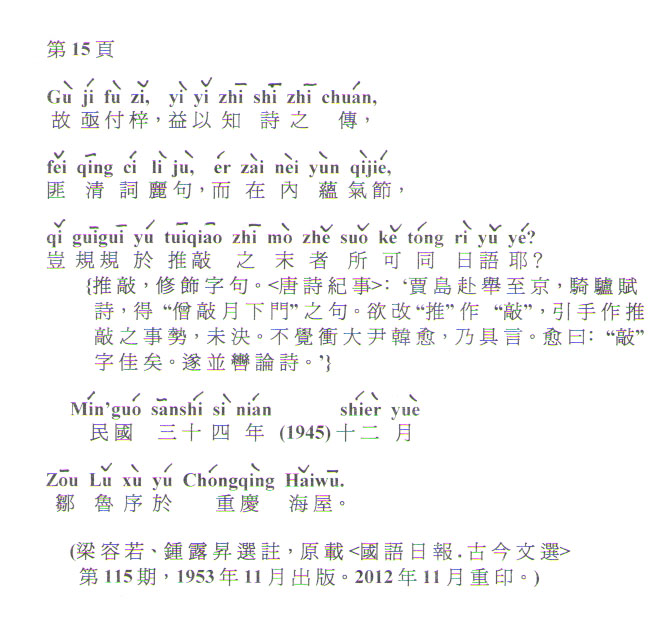 第 15 頁
Gù jí fù zǐ, yì yǐ zhī shī zhī chuán,
故亟付梓，益以知詩之傳，
fěi qīng cí lì jù, ér zài nèi yùn qìjié,
匪清詞麗句，而在內蘊氣節，
qǐ guīguī yú tuīqiāo zhī mò zhě suǒ kě tóng rì yǔ yé?
豈規規於推敲之末者所可同日語耶？
{推敲，修飾字句。<唐詩紀事>：‘賈島赴舉至京，騎驢賦
詩，得 “僧敲月下門” 之句。欲改 “推” 作 “敲”，引手作推
敲之事勢，未決。不覺衝大尹韓愈，乃具言。愈曰：“敲”
字佳矣。遂並轡論詩。’}
Mín’guó sānshí sì nián shíèr yuè
民國 三十四年 (1945) 十二月
Zōu Lǔ xù yú Chóngqìng Hǎiwū.
鄒魯序於 重慶 海屋。
(梁容若、鍾露昇選註，原載 <國語日報．古今文選>
第 115 期，1953 年 11 月出版。2012 年 11 月重印。)